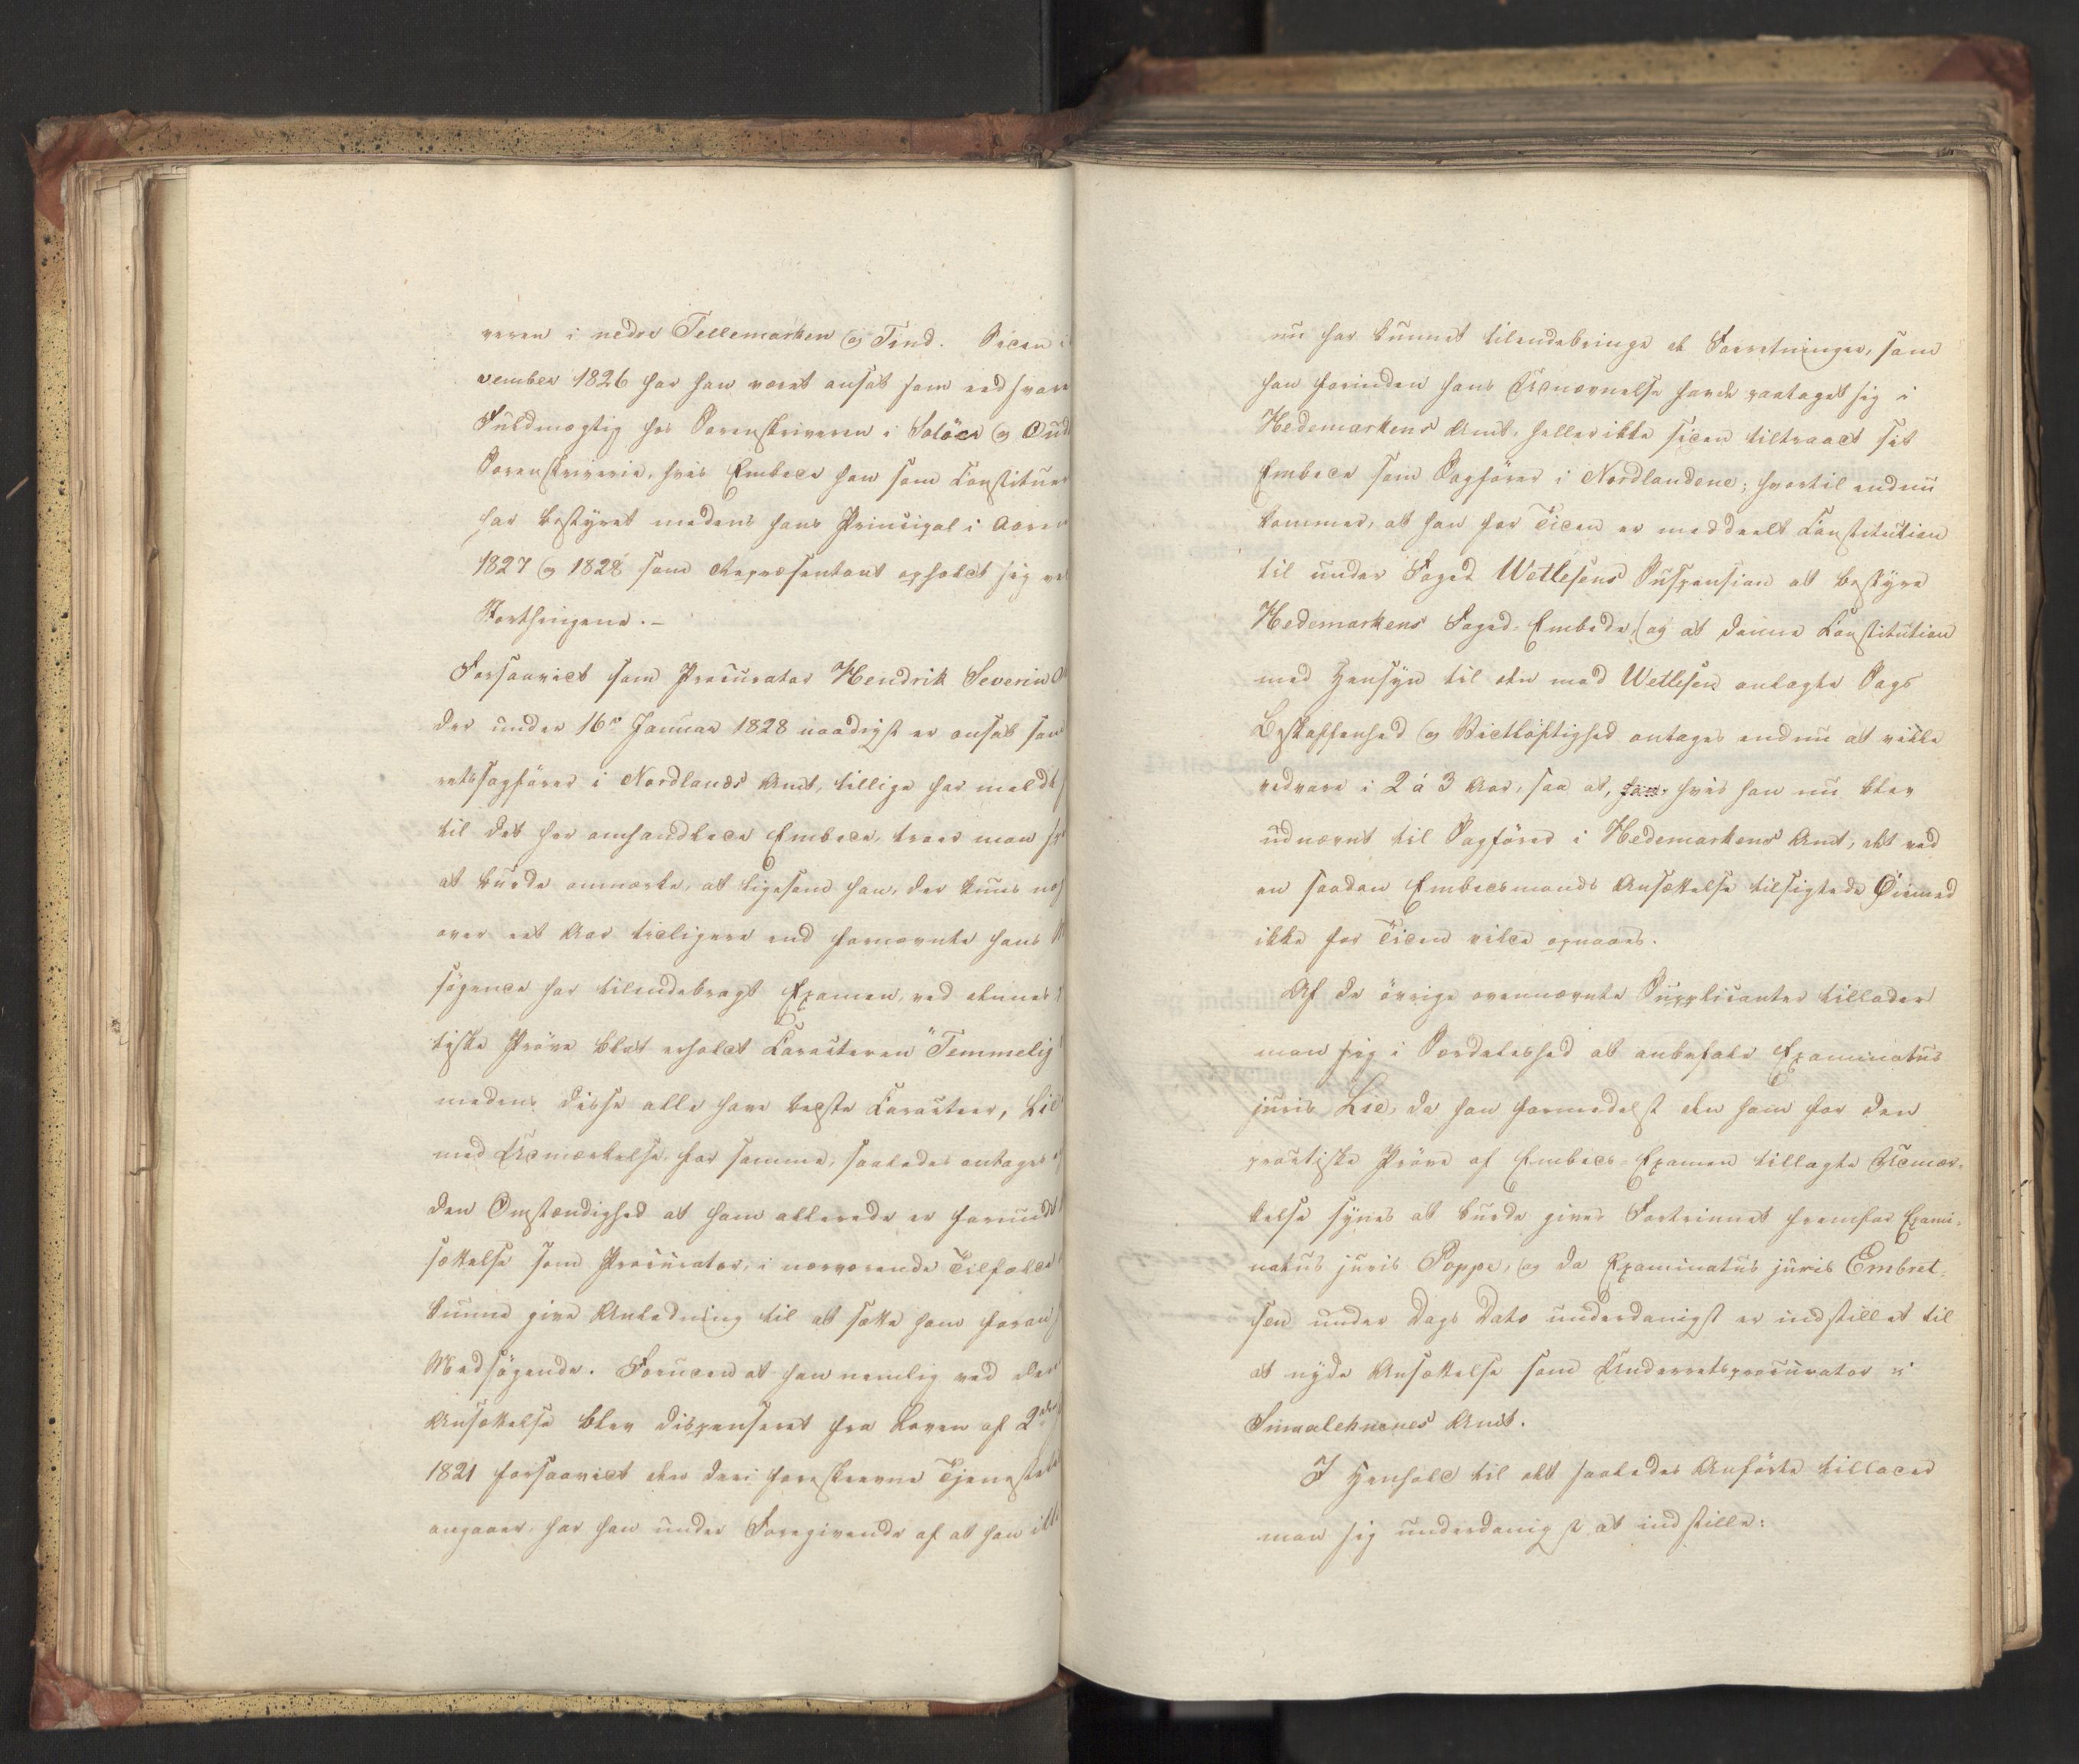 veren i nedre Tellemarken og Tind. Siden i
vember 1826 har han været ansat som eedsvore
Fuldmægtig hos Sorenskriveren i Solöer og Oud
Sorenskriverie, hvis Embede han som Constituer
har bestyret medens hans Principal i Aaren
1827 og 1828 som Repræsentant opholdt sig ve
Storthingene.-
Forsaavidt som Procurator Hendrik Severin
der under 16de Januar 1828 naadigst er ansat som
retssagförer i Nordlands Amt, tillige har meldt
til det her omhandlede Embede, troer man
at burde anmærke, at ligesom han, der kuns no
over eet Aar tidligere end fornævnte hans
søgende har tilendebragt Examen, ved dennes
tiske Pröve blot erholdt Caracteren "Temmelig
medens disse alle have bedste Caracteer, Lie
med Udmærkelse, for samme, saaledes antages
den Omstændighed at ham allerede er forundt
sættelse som Procurator, i nærværende Tilfælde
kunne give Anledning til at sætte ham foran
Medsögende. Foruden at han nemlig ved den
Ansættelse blev dispenseret fra Loven af 2
1821 forsaavidt den deri foreskrevne Tjeneste
angaaer, har han under Foregivende af at han ikke
nu har kunnet tilendebringe de Forretninger, som
han forinden hans Udnævnelse havde paataget sig i
Hedemarkens Amt, heller ikke siden tiltraadt sit
Embede som Sagförer i Nordlandene; hvortil endnu
kommer, at han for Tiden er meddeelt Constitution
til under Foged Wetlesens Suspension at bestyre
Hedemarkens Foged-Embede, og at denne Constitution
med Hensyn til den mod Wetlesen anlagte Sags
Beskaffenhed og Vidtlöftighed antages endnu at ville
vedvare i 2 á 3 Aar, saa at, hvis han nu blev
udnævnt til Sagförer i Hedemarkens Amt, det ved
en saadan Embedsmands Ansættelse tilsigtede Öiemed
ikke for Tiden vilde opnaaes.
Af de övrige ovennævnte Supplicanter tillader
man sig i Særdeleshed at anbefale Examinatus
juris Lie, da han formedelst den ham for den
practiske Pröve af Embeds-Examen tillagte Udmær-
kelse synes at burde gives Fortrinnet fremfor Exami-
natus juris Poppe, og da Examinatus juris Embret-
sen under Dags Dato underdanigst er indstillet til
at nyde Ansættelse som Underretsprocurator i
Smaalehnenes Amt.
I Henhold til det saaledes Anförte tillader
man sig underdanigst at indstille: